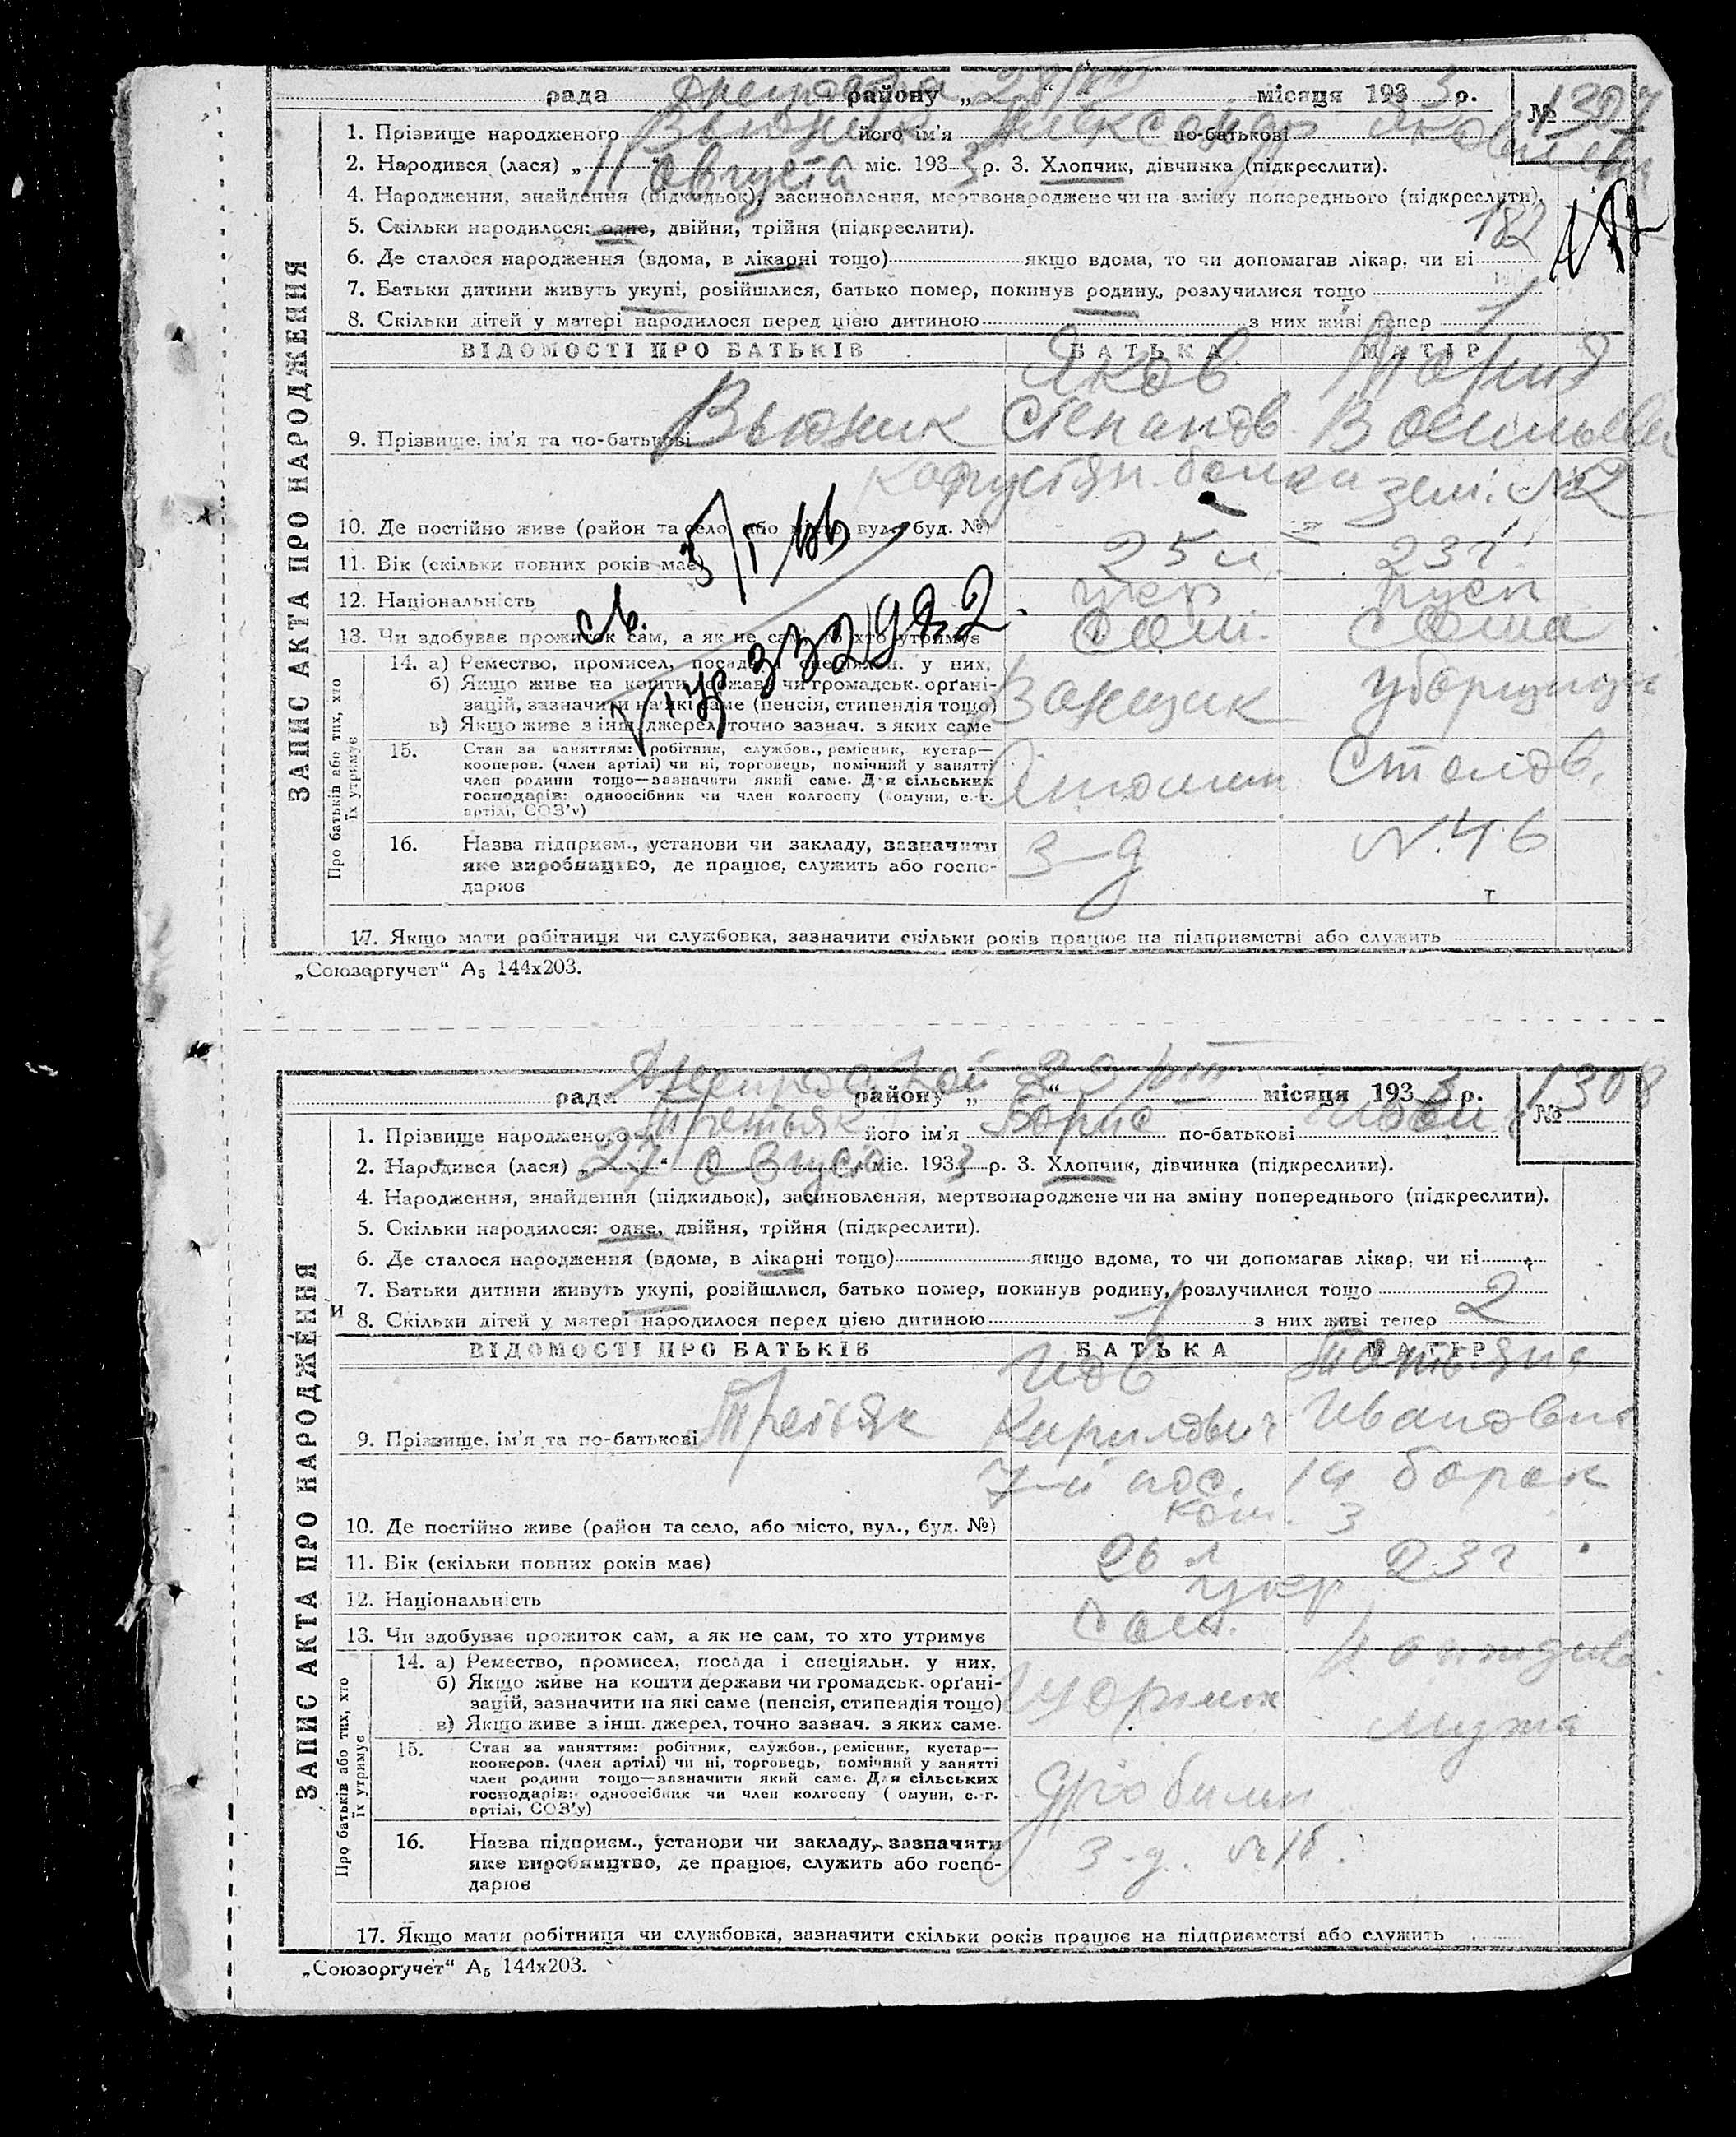 рада району „ 28/VIII “ місяця 193 3 р. № 1307
1. Прізвище народженого Вьюник його ім'я Александр по-батькові Яковлевич
2. Народився (лася) „ 11 “ августа міс. 193 3 р. 3. Хлопчик, дівчинка (підкреслити).
4. Народження, знайдення (підкидьок), засиновлення, мертвонароджене чи на зміну попереднього (підкреслити).
5. Скільки народилося: одне, двійня, трійня (підкреслити). 182
6. Де сталося народження (вдома, в лікарні тощо) якщо вдома, то чи допомагав лікар, чи ні
7. Батьки дитини живуть укупі, розійшлися, батько помер, покинув родину, розлучилися тощо
8. Скільки дітей у матері народилося перед цією дитиною з них живі тепер 1
ВІДОМОСТІ ПРО БАТЬКІВ БАТЬКА МАТІР
Яков Мария
9. Прізвище, ім'я та по-батькові Вьюник Степанов. Васильевн
Капустян. балка зем. №2
10. Де постійно живе (район та село, або місто, вул., буд. №)
11. Вік (скільки повних років має) 25 л. 23 г.
12. Національність укр. руск
13. Чи здобуває прожиток сам, а як не сам, то хто утримує сам. сама
св. 5/I 
УЯ 332982
14. а) Ремество, промисел, посада і спеціяльн. у них,
б) Якщо живе на кошти держави чи громадськ. орґані-
зацій, зазначити на які саме (пенсія, стипендія тощо)
в) Якщо живе з інш. джерел, точно зазнач. з яких саме
уборщица
15. Стан за заняттям: робітник, службов., ремісник, кустар—
кооперов. (член артілі) чи ні, торговець, помічний у занятті
член родини тощо—зазначити який саме. Для сільських
господарів: одноосібник чи член колгоспу (комуни, с.-г.
артілі, СОЗ'у)
Столов.
16. Назва підприєм., установи чи закладу, зазначити
яке виробництво, де працює, служить або госпо-
дарює
з-д №46
17. Якщо мати робітниця чи службовка, зазначити скільки років працює на підприємстві або служить
„Союзоргучет“ А5 144х203.
ЗАПИС АКТА ПРО НАРОДЖЕННЯ
Про батьків або тих, хто
їх утримує
рада району „ 29/VIII “ місяця 193 3 р. № 1308
1. Прізвище народженого Третьяк його ім'я Борис по-батькові Иович
2. Народився (лася) „ 27 “ августа міс. 193 3 р. 3. Хлопчик, дівчинка (підкреслити).
4. Народження, знайдення (підкидьок), засиновлення, мертвонароджене чи на зміну попереднього (підкреслити).
5. Скільки народилося: одне, двійня, трійня (підкреслити).
6. Де сталося народження (вдома, в лікарні тощо) якщо вдома, то чи допомагав лікар, чи ні
7. Батьки дитини живуть укупі, розійшлися, батько помер, покинув родину, розлучилися тощо
8. Скільки дітей у матері народилося перед цією дитиною 1 з них живі тепер 2
ВІДОМОСТІ ПРО БАТЬКІВ БАТЬКА МАТІР
Иов Татьяна
9. Прізвище, ім'я та по-батькові Третьяк Кирилович Ивановна
7-й пос. 14 барак
ком. 3
10. Де постійно живе (район та село, або місто, вул., буд. №)
11. Вік (скільки повних років має) 26 л 23 г
12. Національність укр
13. Чи здобуває прожиток сам, а як не сам, то хто утримує сам.
14. а) Ремество, промисел, посада і спеціяльн. у них,
б) Якщо живе на кошти держави чи громадськ. орґані-
зацій, зазначити на які саме (пенсія, стипендія тощо)
в) Якщо живе з інш. джерел, точно зазнач. з яких саме.
на иждив.
мужа
15. Стан за заняттям: робітник, службов., ремісник, кустар—
кооперов. (член артілі) чи ні, торговець, помічний у занятті
член родини тощо—зазначити який саме. Для сільських
господарів: одноосібник чи член колгоспу ( омуни, с.-г.
артілі, СОЗ'у)
16. Назва підприєм., установи чи закладу, зазначити
яке виробництво, де працює, служить або госпо-
дарює
з-д. №
17. Якщо мати робітниця чи службовка, зазначити скільки років працює на підприємстві або служить
„Союзоргучет“ А5 144х203.
ЗАПИС АКТА ПРО НАРОДЖЕННЯ
Про батьків або тих, хто
їх утримує